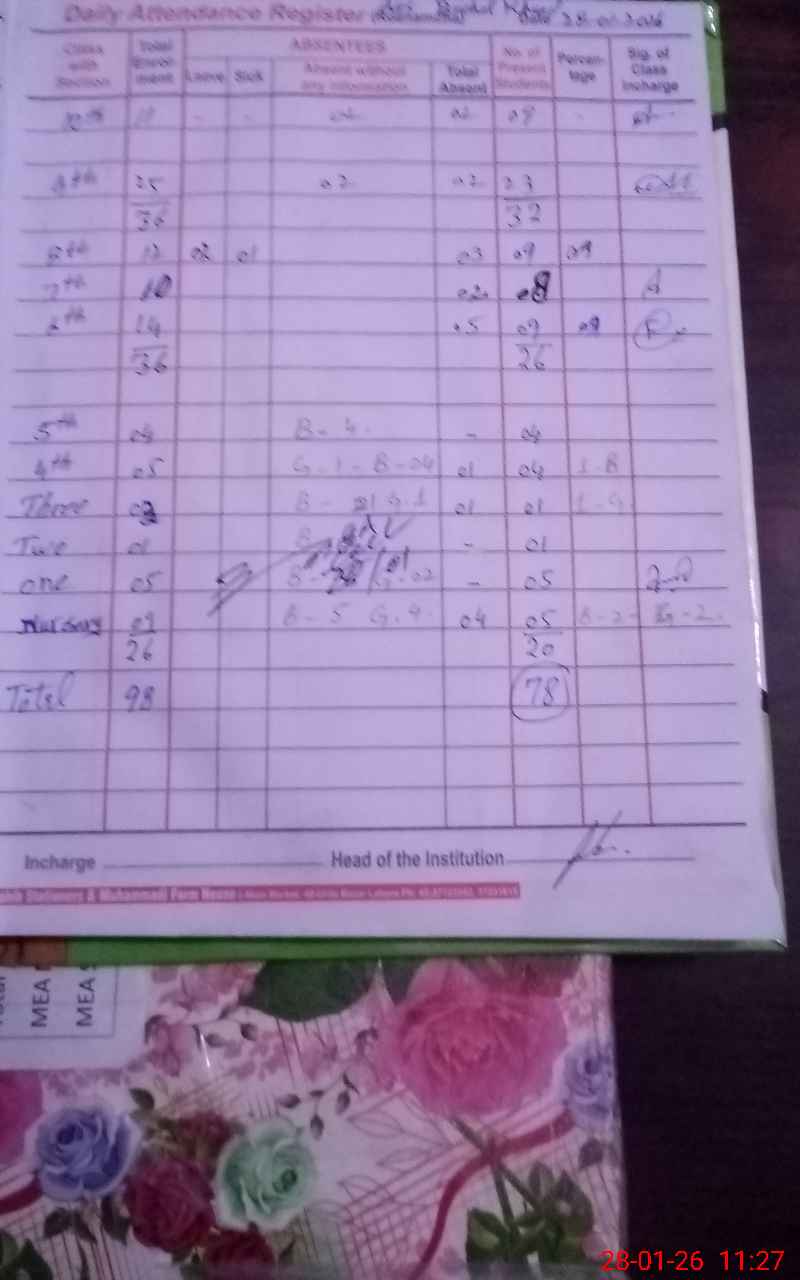 Daily Attendance Register Date 28-01-2026
Class with Section Total Enrol-ment ABSENTEES Leave Sick Absent without any information Total Absent No. of Present Students Percen-tage Sig. of Class Incharge
10th 11 - - 02 02 09 -
9th 25 02 02 23
36 32
8th 12 02 01 03 09 09
7th 10 02 08
6th 14 05 09 09
36 26
5th 04 B-4. - 04
4th 05 G-1-B-04 01 04 1-B
Three 02 B- G.1 01 01 1-G
Two 01 - 01
one 05 - 05
Nursery 09 B-5 G.4. 04 05 B-2- G-2.
26 20
Total 98 78
Incharge Head of the Institution
MEA
MEA
28-01-26 11:27